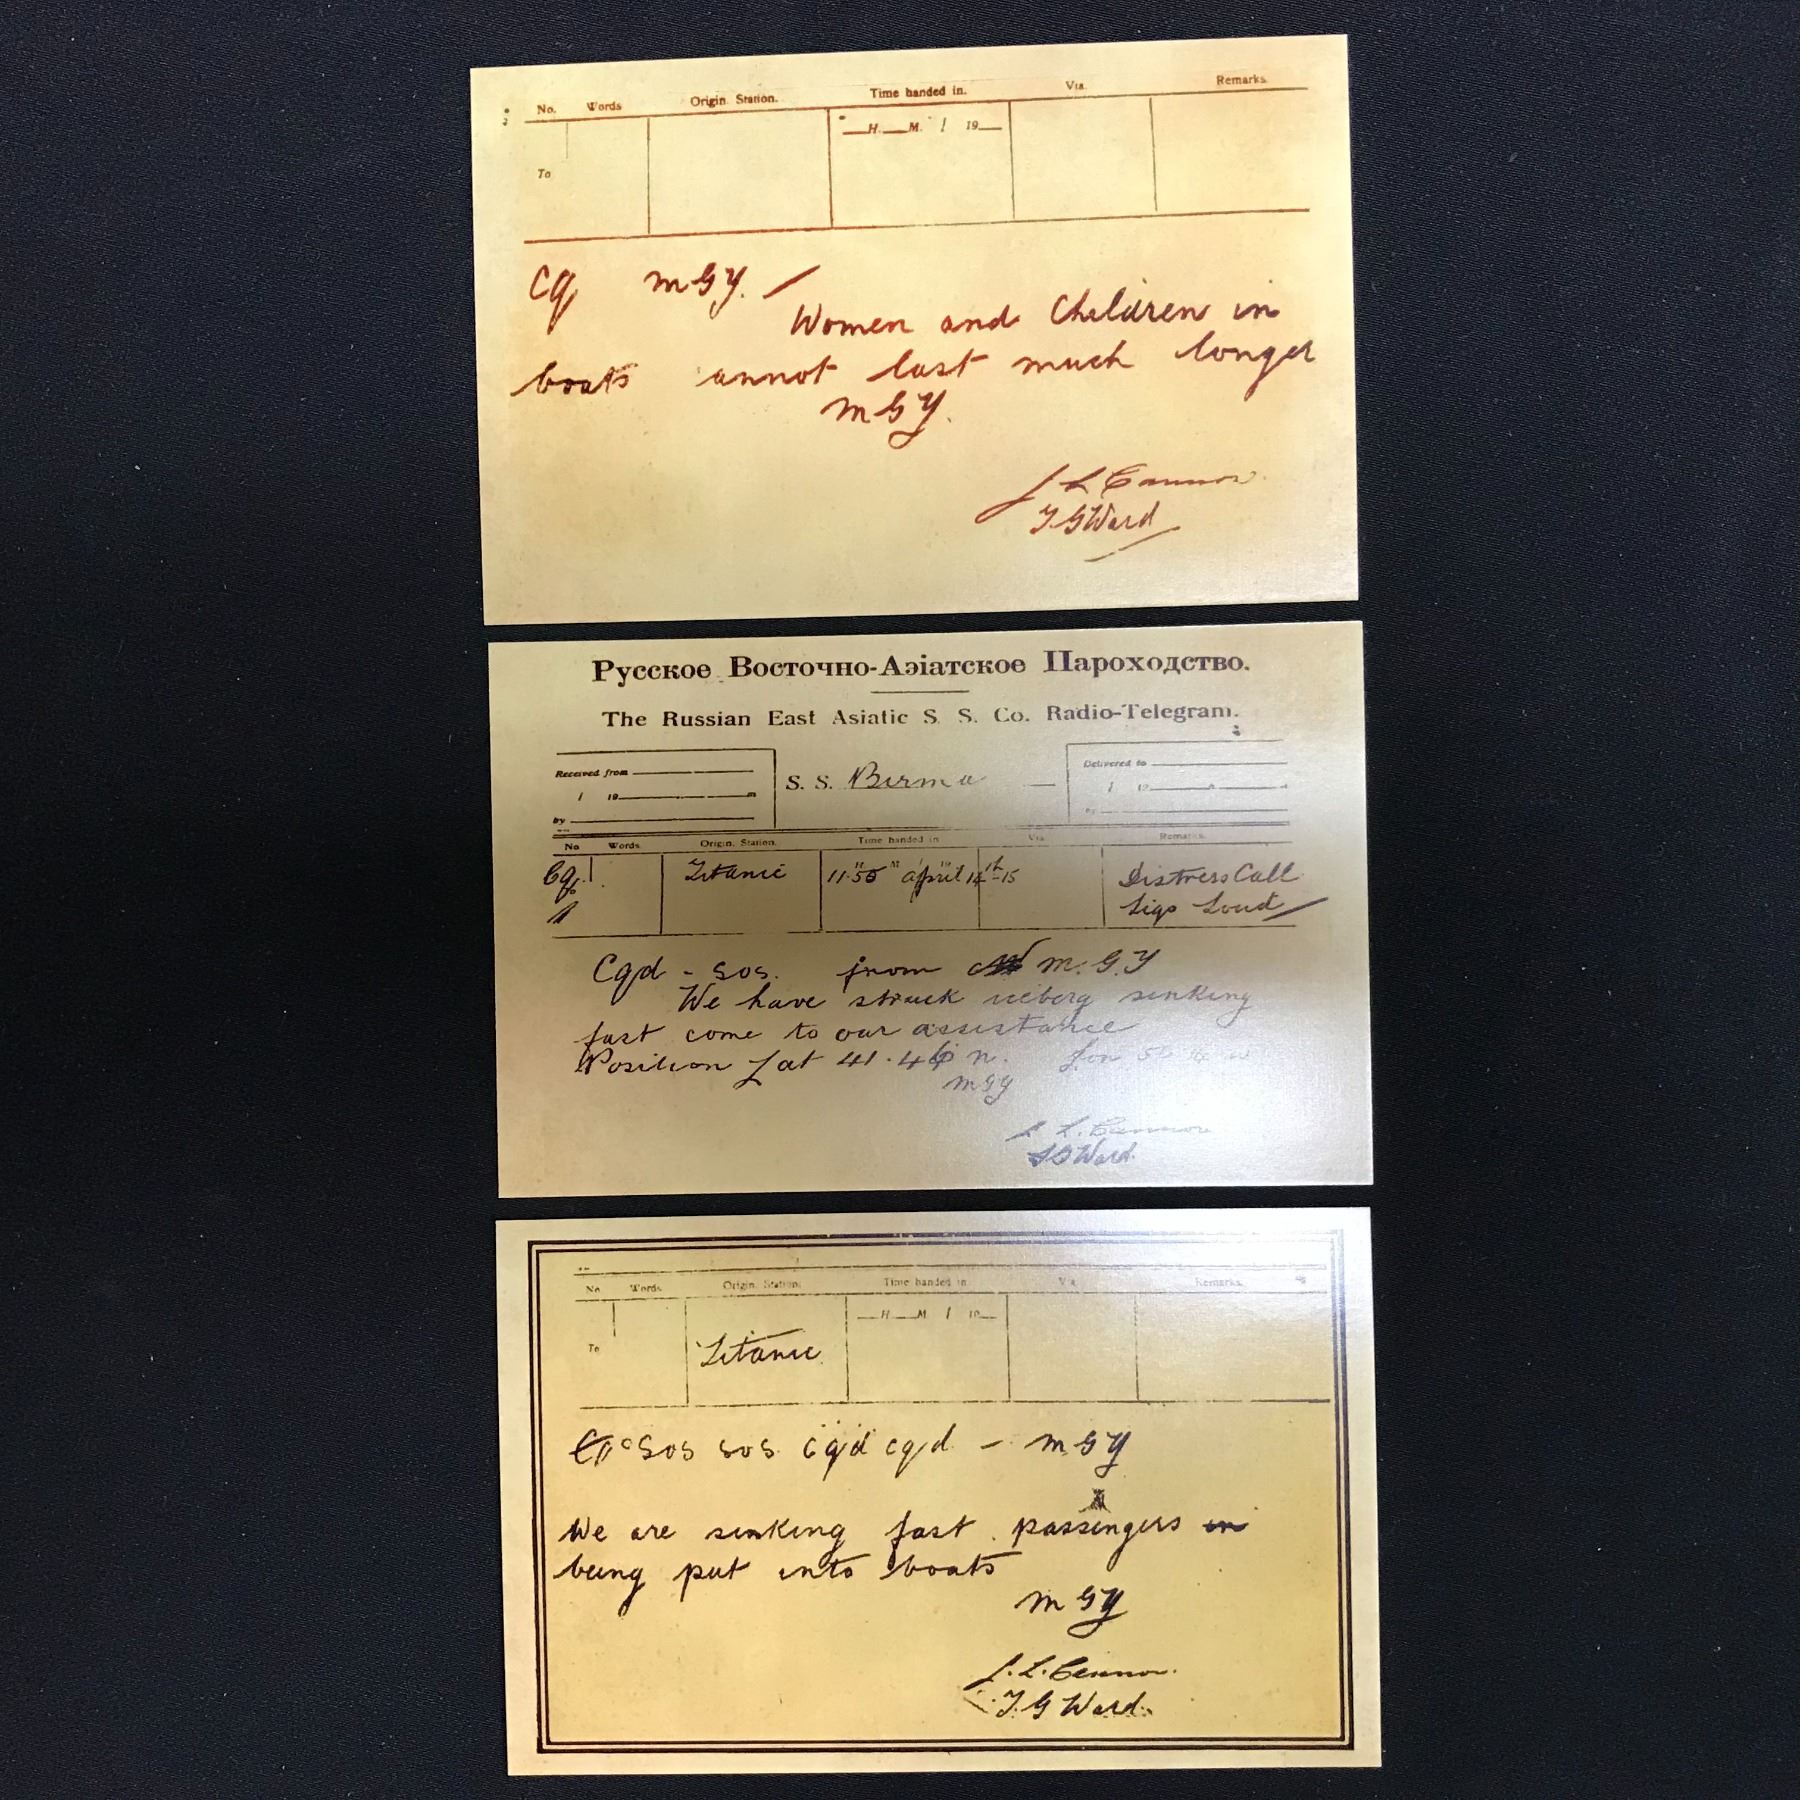 No. Words Origin. Station. Time handed in. Via. Remarks.
H. M. / 19
To
Cq MGY. /
Women and Children in
boats annot last much longer
MGY.
J L Cannon
T G Ward
Русское Восточно-Азіатское Пароходство.
The Russian East Asiatic S. S. Co. Radio-Telegram.
Received from
/ 19
by
S. S. Birma
Delivered to
/ 19
by
No Words. Origin. Station. Time handed in Via Remarks.
Cq. Titanic 11.50 H M April 14th-15 Distress Call
Sigs Loud
Cqd - SOS. from M.G.Y
We have struck iceberg sinking
fast come to our assistance
Position Lat 41.46 n. Lon
MGY
J. L. Cannon
T G Ward.
No. Words. Origin. Station. Time handed in. Via Remarks.
H M / 19
To Titanic
SOS SOS cqd cqd - MGY
We are sinking fast passengers
being put into boats
MGY
J. L. Cannon.
T. G Ward.